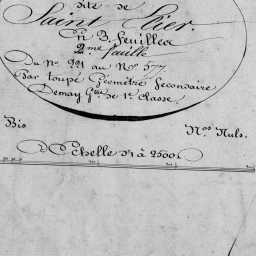 dite de
Saint Clier.
En 3. feuilles
2.me feuille
Du Nº 221 au Nº 577
Par toupé Géomètre Secondaire
Demay G.tre de 1.e Classe.
Bis
N.os Nuls.
Echelle d'1 à 2500.